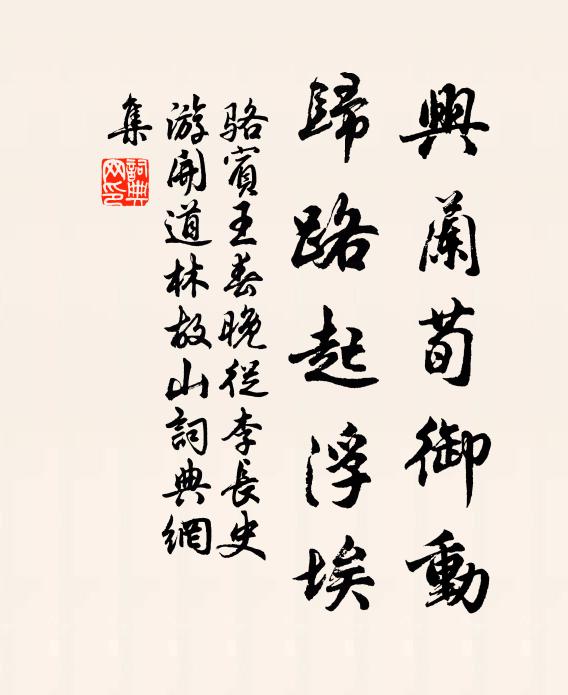 興蘭荀御動
歸路起浮埃
駱賓王春晚從李長史
游開道林故山詞典網
集
詞典網印